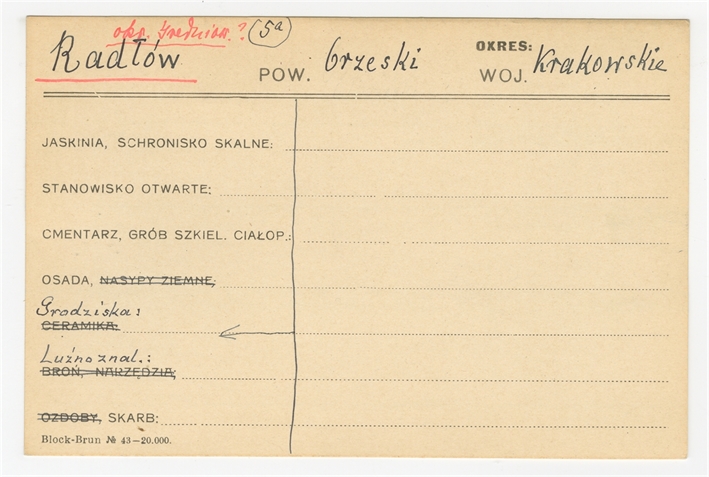 okr. średniow.? 5a
Radłów POW. brzeski OKRES: WOJ. Krakowskie
JASKINIA, SCHRONISKO SKALNE:
STANOWISKO OTWARTE:
CMENTARZ, GRÓB SZKIEL. CIAŁOP.:
OSADA, NASYPY ZIEMNE,
Grodziska:
CERAMIKA:
Luźno znal.:
BROŃ, NARZĘDZIA,
OZDOBY, SKARB:
Block-Brun № 43-20.000.